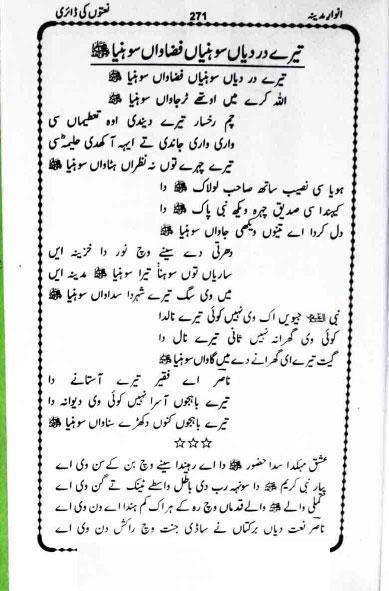 انوار مدینہ 271 نعتوں کی ڈائری
تیرے در دیاں سوہنیاں فضاواں سوہنیا ﷺ
تیرے در دیاں سوہنیاں فضاواں سوہنیا ﷺ
اللہ کرے میں اوتھے ٹرجاواں سوہنیا ﷺ
چم رخسار تیرے دیندی اوہ تعظیماں سی
واری واری جاندی تے ایہہ آکھدی حلیمہؓ سی
تیرے چہرے توں نہ نظراں ہٹاواں سوہنیا ﷺ
ہویا سی نصیب ساتھ صاحب لولاک ﷺ دا
کہندا سی صدیق چہرہ ویکھ نبی پاک ﷺ دا
دل کردا اے تینوں ویکھی جاواں سوہنیا ﷺ
دھرتی دے سینے وچ نور دا خزینہ ایں
ساریاں توں سوہنا تیرا سوہنیا ﷺ مدینہ ایں
میں وی سگ تیرے شہر دا سداواں سوہنیا ﷺ
نبی جیویں اک وی نہیں کوئی تیرے نال دا
کوئی وی گھرانہ نہیں ثانی تیرے نال دا
گیت تیرے ای گھرانے دے میں گاواں سوہنیا ﷺ
ناصر اے فقیر تیرے آستانے دا
تیرے باہجوں آسرا نہیں کوئی وی دیوانہ دا
تیرے باہجوں کنوں دکھڑے سناواں سوہنیا ﷺ
☆☆☆
عشق مہکدا سدا حضور ﷺ دا اے رہندا سینے وچ بن کے سن وی اے
پیار نبی کریم ﷺ دا سونہہ رب دی باطل واسطے ٹینک تے گن وی اے
کملی والے ﷺ والے قدماں وچ رہ کے ہر اک کم ہندا اے ون وی اے
ناصر نعت دیاں برکتاں نے ساڈی جنت وچ راکش دن وی اے